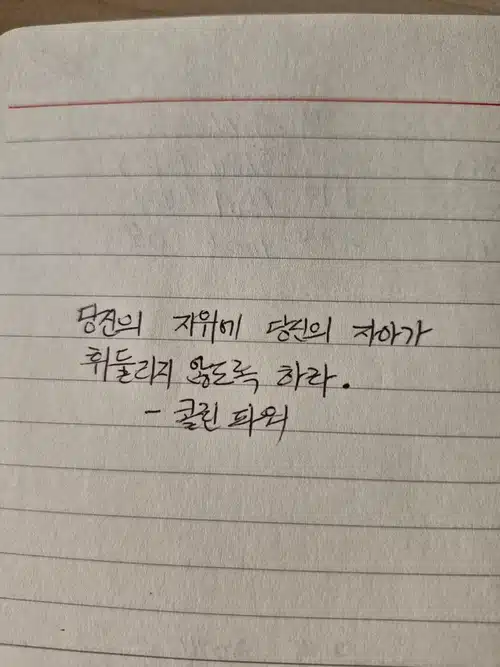 당신의 자위에 당신의 자아가
휘둘리지 않도록 하라.
- 콜린 파월